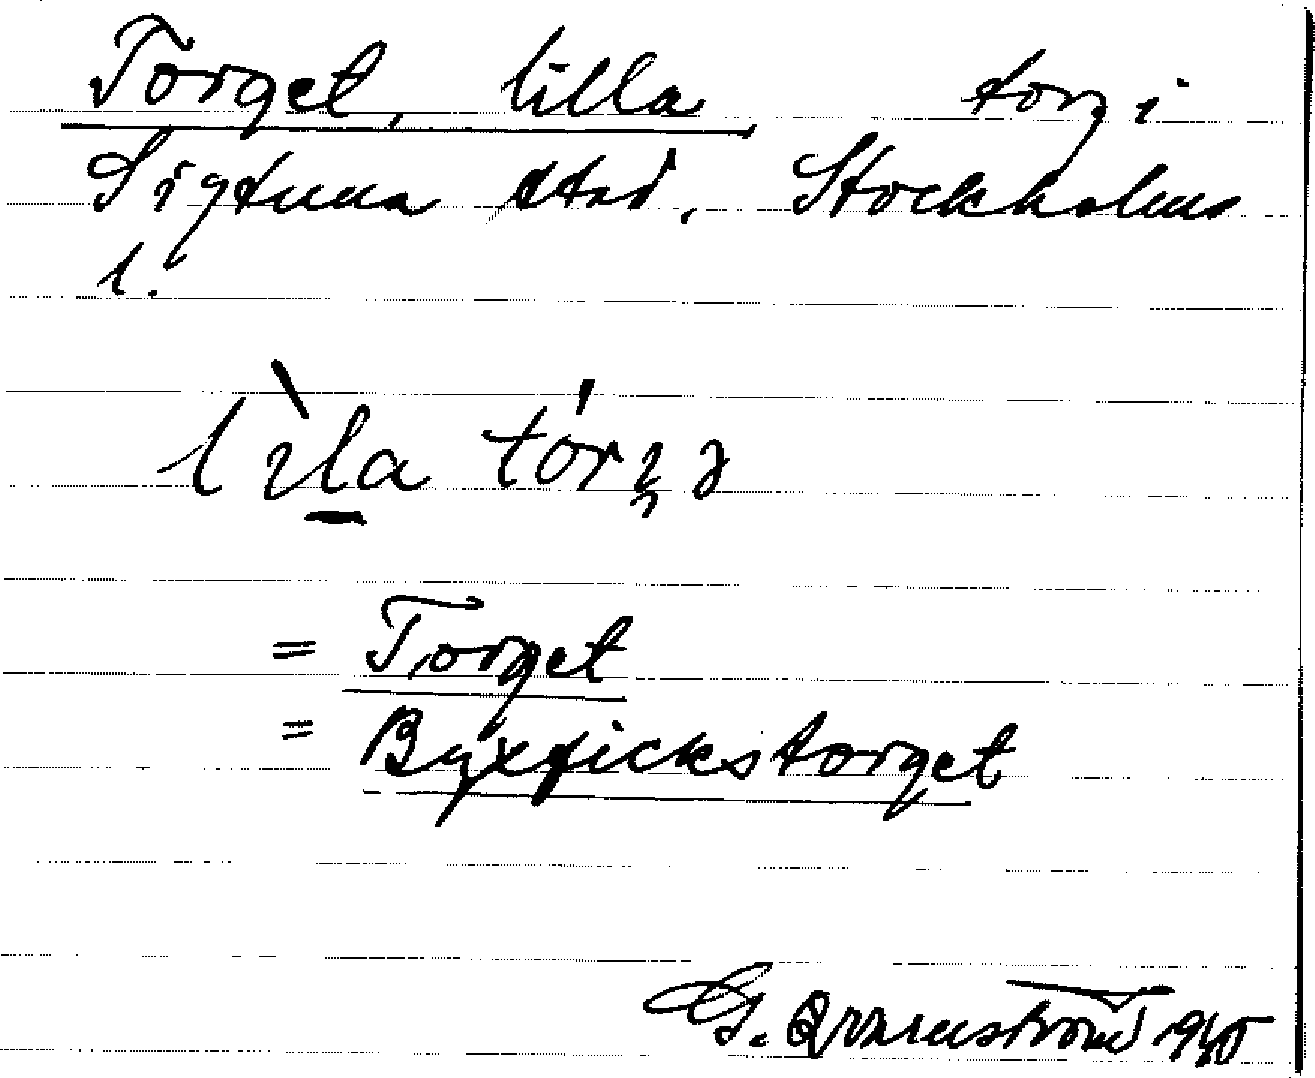 Torget, lilla torg i
Sigtuna stad, Stockholms
l.
lìla tórʒə
= Torget
= Byxfickstorget
G. Qvarnström 1940